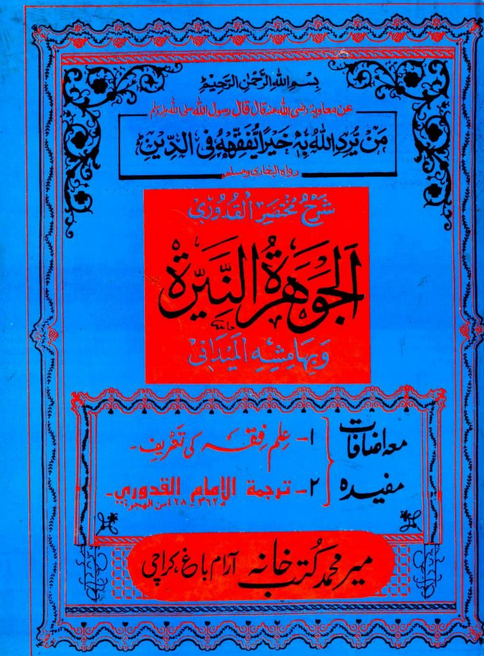 بسم الله الرحمن الرحيم
عن معاوية رضى الله عنه قال قال رسول الله صلى الله عليه وسلم
من يرد الله به خيرا يفقهه فى الدين
رواه البخارى ومسلم
شرح مختصر القدوري
الجوهرة النيرة
وبهامشه الميدانى
معه اضافات مفيده
١- علم فقہ کی تعریف -
٢- ترجمة الإمام القدوري -
میر محمد کتب خانہ آرام باغ، کراچی